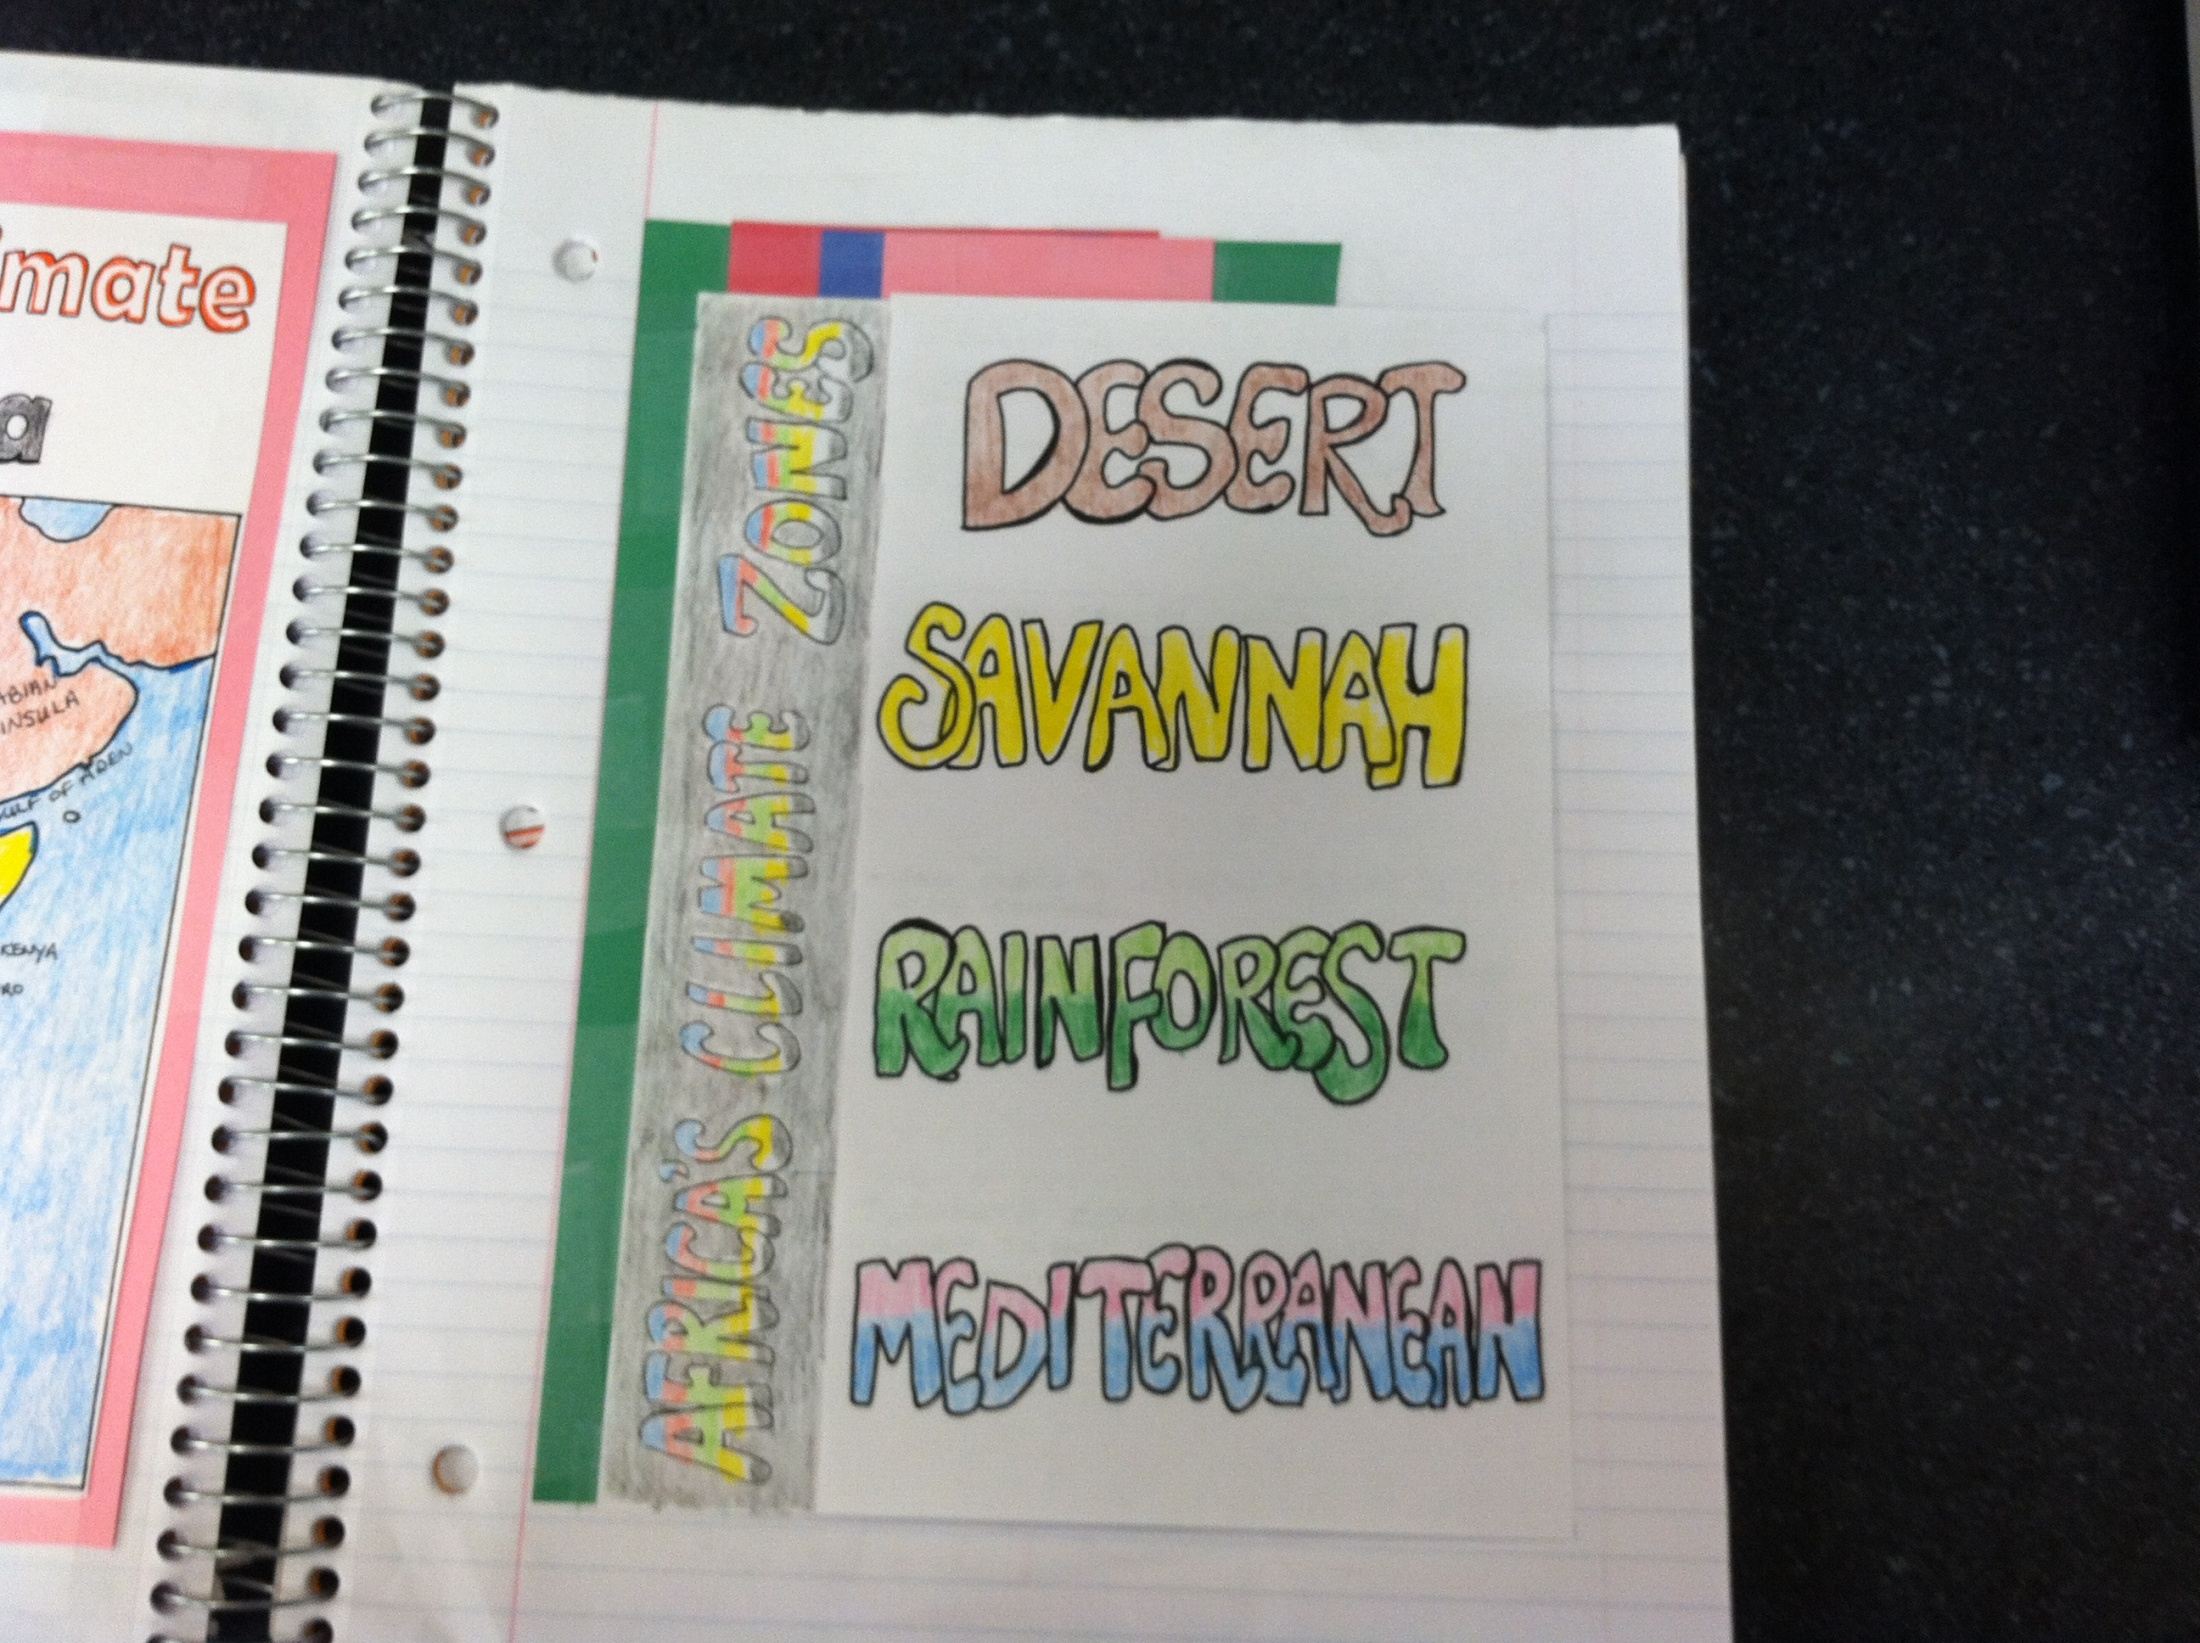 mate
a
ABIAN
INSULA
GULF OF ADEN
KENYA
RO
AFRICA'S CLIMATE ZONES
DESERT
SAVANNAH
RAINFOREST
MEDITERRANEAN